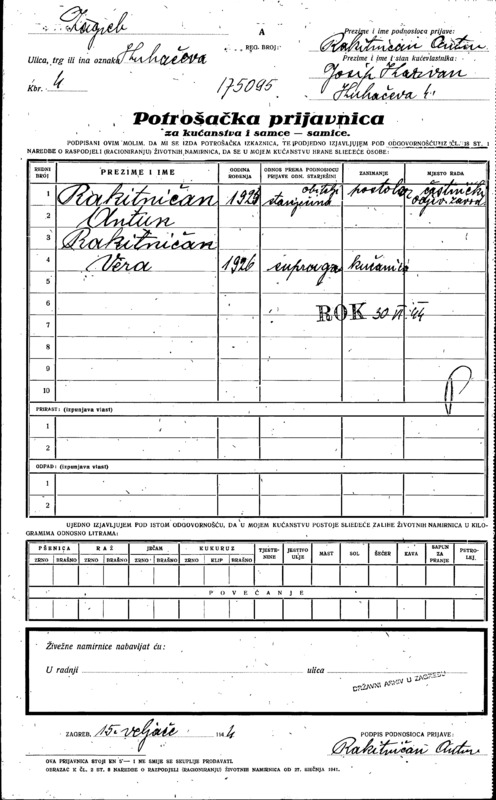 Zagreb
A
Prezime i ime podnosioca prijave:
Rakitničan Antun
Ulica, trg ili ina oznaka Kuhačeva
REG. BROJ:
Prezime i ime i stan kućevlastnika:
Josip Horvan
Kbr. 4
175095
Kuhačeva 4.
Potrošačka prijavnica
za kućanstva i samce — samice.
POTPISANI OVIM MOLIM, DA MI SE IZDA POTROŠAČKA IZKAZNICA, TE PODJEDNO IZJAVLJUJEM POD ODGOVORNOŠĆU IZ ČL. 18 ST. 1
NAREDBE O RASPODJELI (RACIONIRANJU) ŽIVOTNIH NAMIRNICA, DA SE U MOJEM KUĆANSTVU HRANE SLIJEDEĆE OSOBE:
REDNI BROJ
PREZIME I IME
GODINA ROĐENJA
ODNOS PREMA PODNOSIOCU PRIJAVE ODN. STARJEŠINI
ZANIMANJE
MJESTO RADA
1 Rakitničan 1925 obitelji starješina postolar častnički odjev. zavod
2 Antun
3 Rakitničan
4 Vera 1926 supruga kućanica
5
6
7 ROK 30 VI 44
8
9
10
PRIRAST: (izpunjava vlast)
1
2
ODPAD: (izpunjava vlast)
1
2
UJEDNO IZJAVLJUJEM POD ISTOM ODGOVORNOŠĆU, DA U MOJEM KUĆANSTVU POSTOJE SLIJEDEĆE ZALIHE ŽIVOTNIH NAMIRNICA U KILO-
GRAMIMA ODNOSNO LITRAMA:
PŠENICA RAŽ JEČAM KUKURUZ TJESTENINE JESTIVO ULJE MAST SOL ŠEĆER KAVA SAPUN ZA PRANJE PETROLEJ
ZRNO BRAŠNO ZRNO BRAŠNO ZRNO BRAŠNO ZRNO KLIP BRAŠNO
POVEĆANJE
Živežne namirnice nabavljat ću:
U radnji ulica
DRŽAVNI ARHIV U ZAGREBU
ZAGREB, 15. veljače 194 4
POTPIS PODNOSIOCA PRIJAVE:
Rakitničan Antun
OVA PRIJAVNICA STOJI KN 5— I NE SMIJE SE SKUPLJE PRODAVATI.
OBRAZAC K ČL. 2 ST. 8 NAREDBE O RAZPODJELI (RACIONIRANJU) ŽIVOTNIH NAMIRNICA OD 27. SIEČNJA 1941.